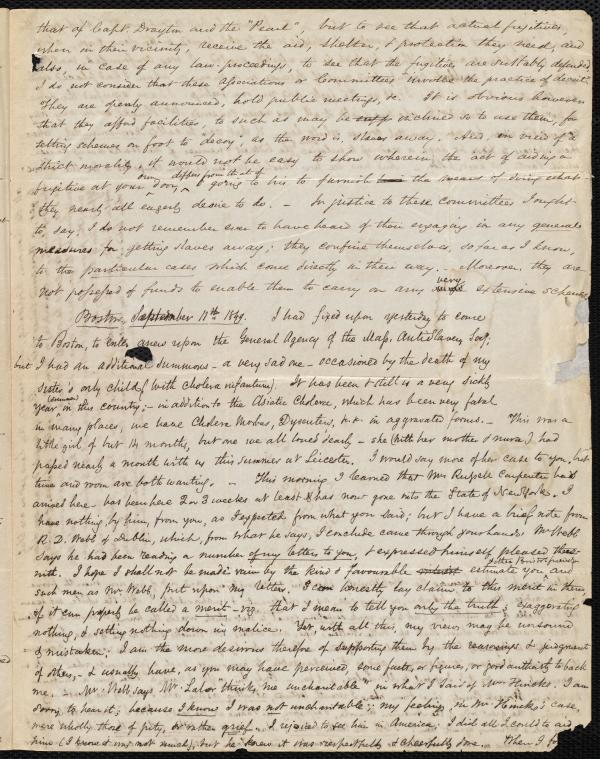 that of Capt. Drayton and the "Pearl", but to see that actual fugitives,
when in their vicinity, receive the aid, shelter, & protection they need, and
also, in case of any law-proceedings, to see that the fugitives are suitably defended.
I do not consider that these Associations or Committees "involve the practice of deceit".
They are openly announced, hold public meetings, &c. It is obvious however
that they afford facilities, to such as may be inclined so to use them, for
setting schemes on foot to decoy, as the word is, slaves away. And, in view of a
strict morality, it would not be easy to show wherein the act of aiding a
fugitive at your own door, differs from that of going to his to furnish the means of doing what
they nearly all eagerly desire to do. – In justice to these Committees I ought
to say, I do not remember ever to have heard of their engaging in any general
measures for getting slaves away; they confine themselves, so far as I know,
to the particular cases which come directly in their way. – Moreover, they are
not possessed of funds to enable them to carry on any very extensive schemes.
Boston, September 11th 1849. I had fixed upon yesterday to come
to Boston, to enter anew upon the General Agency of the Mass. AntiSlavery Soc.
but I had an additional summons – a very sad one – occasioned by the death of my
sister's only child (with Cholera infantum). It has been & still is a very sickly
year (summer) in this country; – in addition to the Asiatic Cholera, which has been very fatal
in many places, we have Cholera Morbus, Dysentery, &c. in aggravated forms. – This was a
little girl of but 14 months, but one we all loved dearly – she (with her mother & nurse) had
passed nearly a month with us this summer at Leicester. I would say more of her case to you, but
time and room are both wanting. – This morning I learned that Mrs Russell Carpenter had
arrived here – has been here 2 or 3 weeks at least & has now gone into the State of New York. I
have nothing by him, from you, as I expected from what you said; but I have a brief note from
R. D. Webb of Dublin, which, from what he says, I conclude came through your hands. Mr Webb
says he had been reading a number of my letters to you, & expressed himself pleased
with. I hope I shall not be made vain by the kind & favourable estimate you and
such men as Mr. Webb, put upon my letters. I can honestly lay claim to this merit in them
if it can properly be called a merit – viz. that I mean to tell you only the truth; exaggerating
nothing, & setting nothing down in malice. Yet, with all this, my views may be unsound
& mistaken; I am the more desirous therefore of supporting them by the reasonings & judgment
of others, – & usually have, as you may have perceived, some facts, or figures, or good authority to back
me. – Mr. Webb says Mr. Lalor "thinks me uncharitable" in what I said of Mr Hincks. I am
sorry to hear it; because I know I was not uncharitable; my feelings in Mr. Hincks's case,
were wholly those of pity, or rather grief. I rejoiced to see him in America; I did all I could to aid
him (I know it was not much), but he knew it was respectfully & cheerfully done. When I